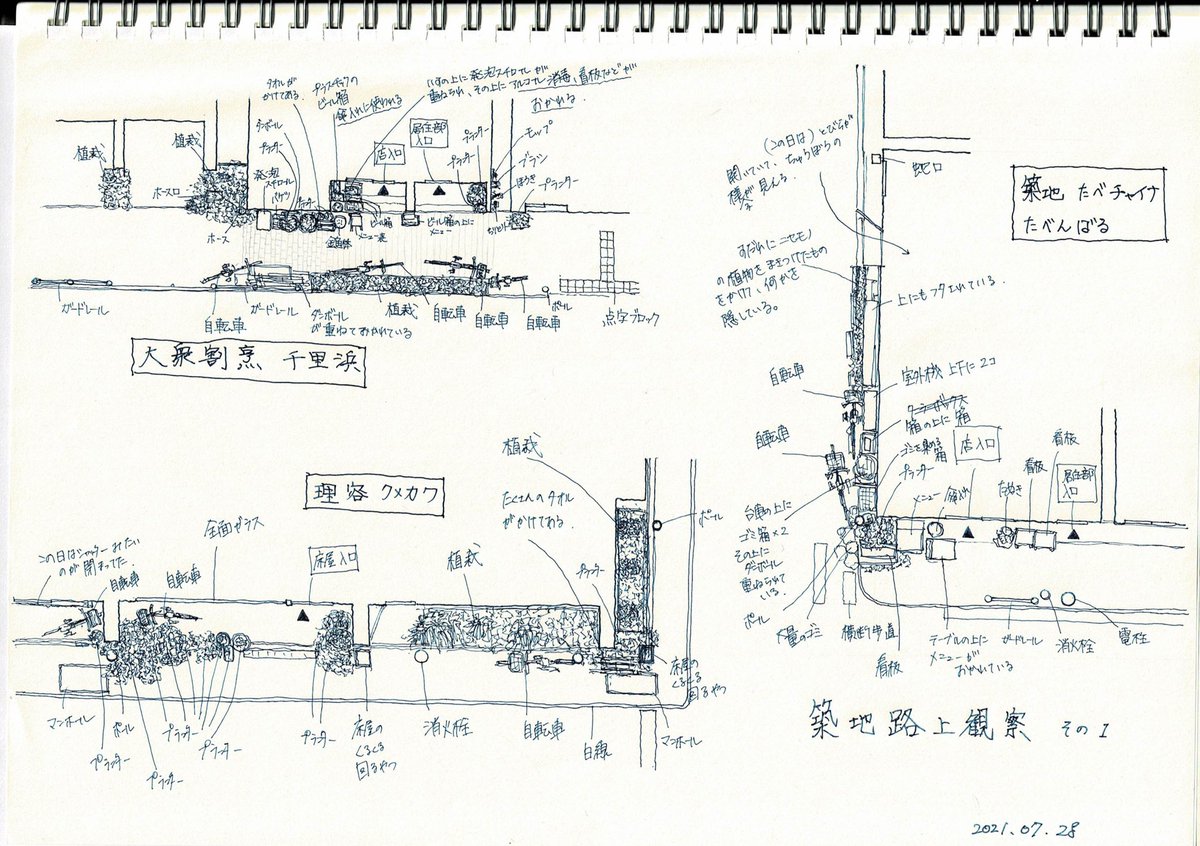 タオルが
かけてある
プラスチックの
ビール箱
傘入れに使われる
いすの上に発泡スチロールが
重ねられ、その上にアルコール消毒、看板などが
おかれる。
植栽
植栽
ダンボール
プランター
店入口
居住部
入口
プランター
プランター
モップ
ブラシ
ほうき
プランター
ちりとり
ホース口
発泡
スチロール
バケツ
ホース
メニュー表
ビール箱
ビール箱の上に
メニュー
ガードレール
自転車
ガードレール
ダンボール
が重ねておかれている
植栽
自転車
自転車
自転車
ポール
点字ブロック
大衆割烹 千里浜
理容 クメカワ
この日はシャッターみたい
のが閉まってた。
自転車
全面ガラス
自転車
床屋入口
植栽
植栽
たくさんのタオル
がかけてある。
プランター
ポール
マンホール
プランター
ポール
プランター
プランター
プランター
プランター
床屋の
くるくる
回るやつ
消火栓
自転車
白線
マンホール
床屋の
くるくる
回るやつ
築地 たべチャイナ
たべんばる
(この日は)とびらが
開いていて、ちゅうぼうの
様子が見える。
蛇口
すだれにニセモノ
の植物をまきつけたもの
をかけて、何かを
隠している。
自転車
自転車
室外機 上下に2コ
箱の上に箱
ゴミを集める
箱
プランター
店入口
メニュー
傘入れ
たぬき
看板
看板
居住部
入口
台車の上に
ゴミ箱×2
その上に
ダンボール
重ねられて
いる。
ポール
大量のゴミ
横断歩道
看板
テーブルの上に
メニューが
おかれている
ガードレール
消火栓
電柱
築地路上観察 その1
2021.07.28